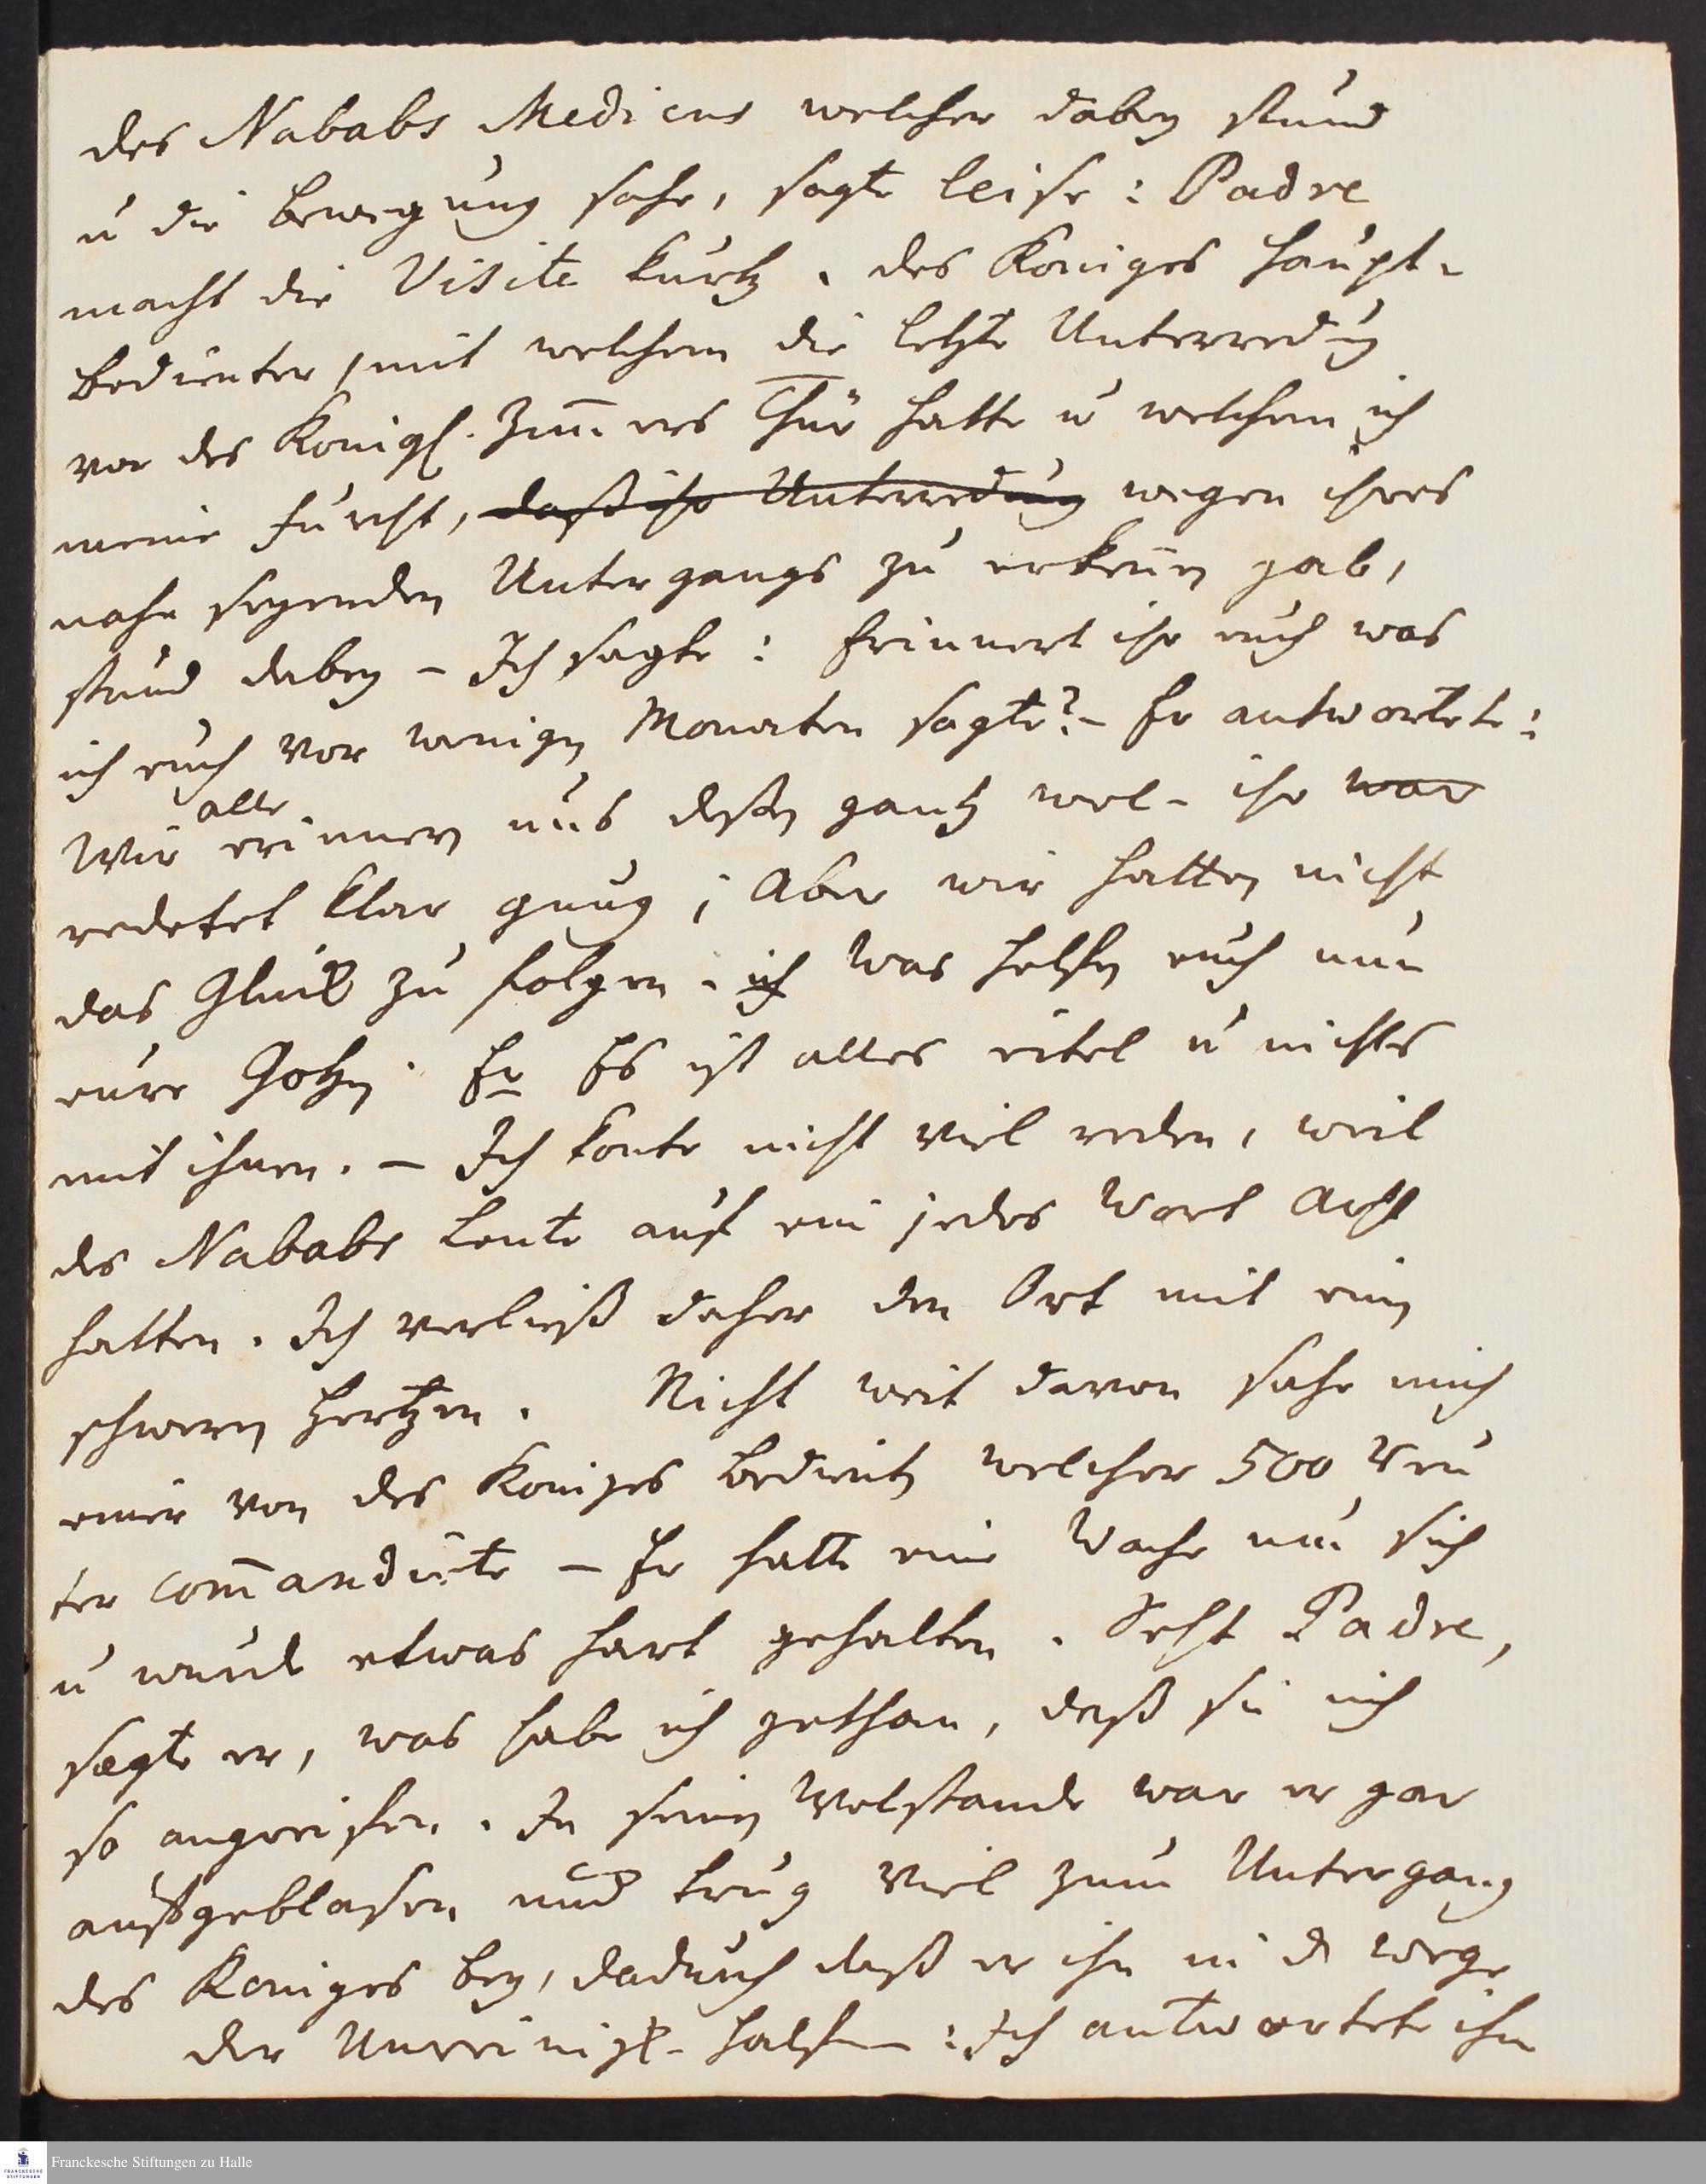 des Nababs Medicus welcher dabey stund
u die Bewegung sahe, sagte leise: Padre
macht die Visite kurtz. des Koniges Haupt-
bedienter, mit welchem die letzte Unterredūg
vor des Königl. Zim̄ers Thür hatte u welchem ich
meine Furcht, daß ihr Unterredung wegen ihres
nahe seyenden Untergangs zu erken̄en gab,
stund dabey – Ich sagte: Erinnert ihr euch was
ich euch vor wenigen Monaten sagte? – Er antwortete:
alle
Wir erinnern uns deßen gantz wol – ihr war
redetet klar gnug; Aber wir hatten nicht
das Glück zu folgen. ich Was helfen euch nun
eure Götzen. Er Es ist alles eitel u nichts
mit ihnen. – Ich konte nicht viel reden, weil
des Nababs Leute auf ein jedes Wort Acht
hatten. Ich verließ daher den Ort mit einen
schweren Hertzen. Nicht weit davon sahe mich
einer von des Koniges Bedienten welcher 500 Reu
ter com̄andirte – Er hatte eine Wache um sich
u wurde etwas hart gehalten. Seht Padre,
sagte er, was habe ich gethan, daß sie mich
so angreifen. In seinen Wolstande war er gar
aufgeblasen und trug viel zum Untergang
des Koniges bey, dadurch daß er ihn in d Wege
der Unreinigk. halfen: Ich antwortete ihm
Franckesche Stiftungen zu Halle